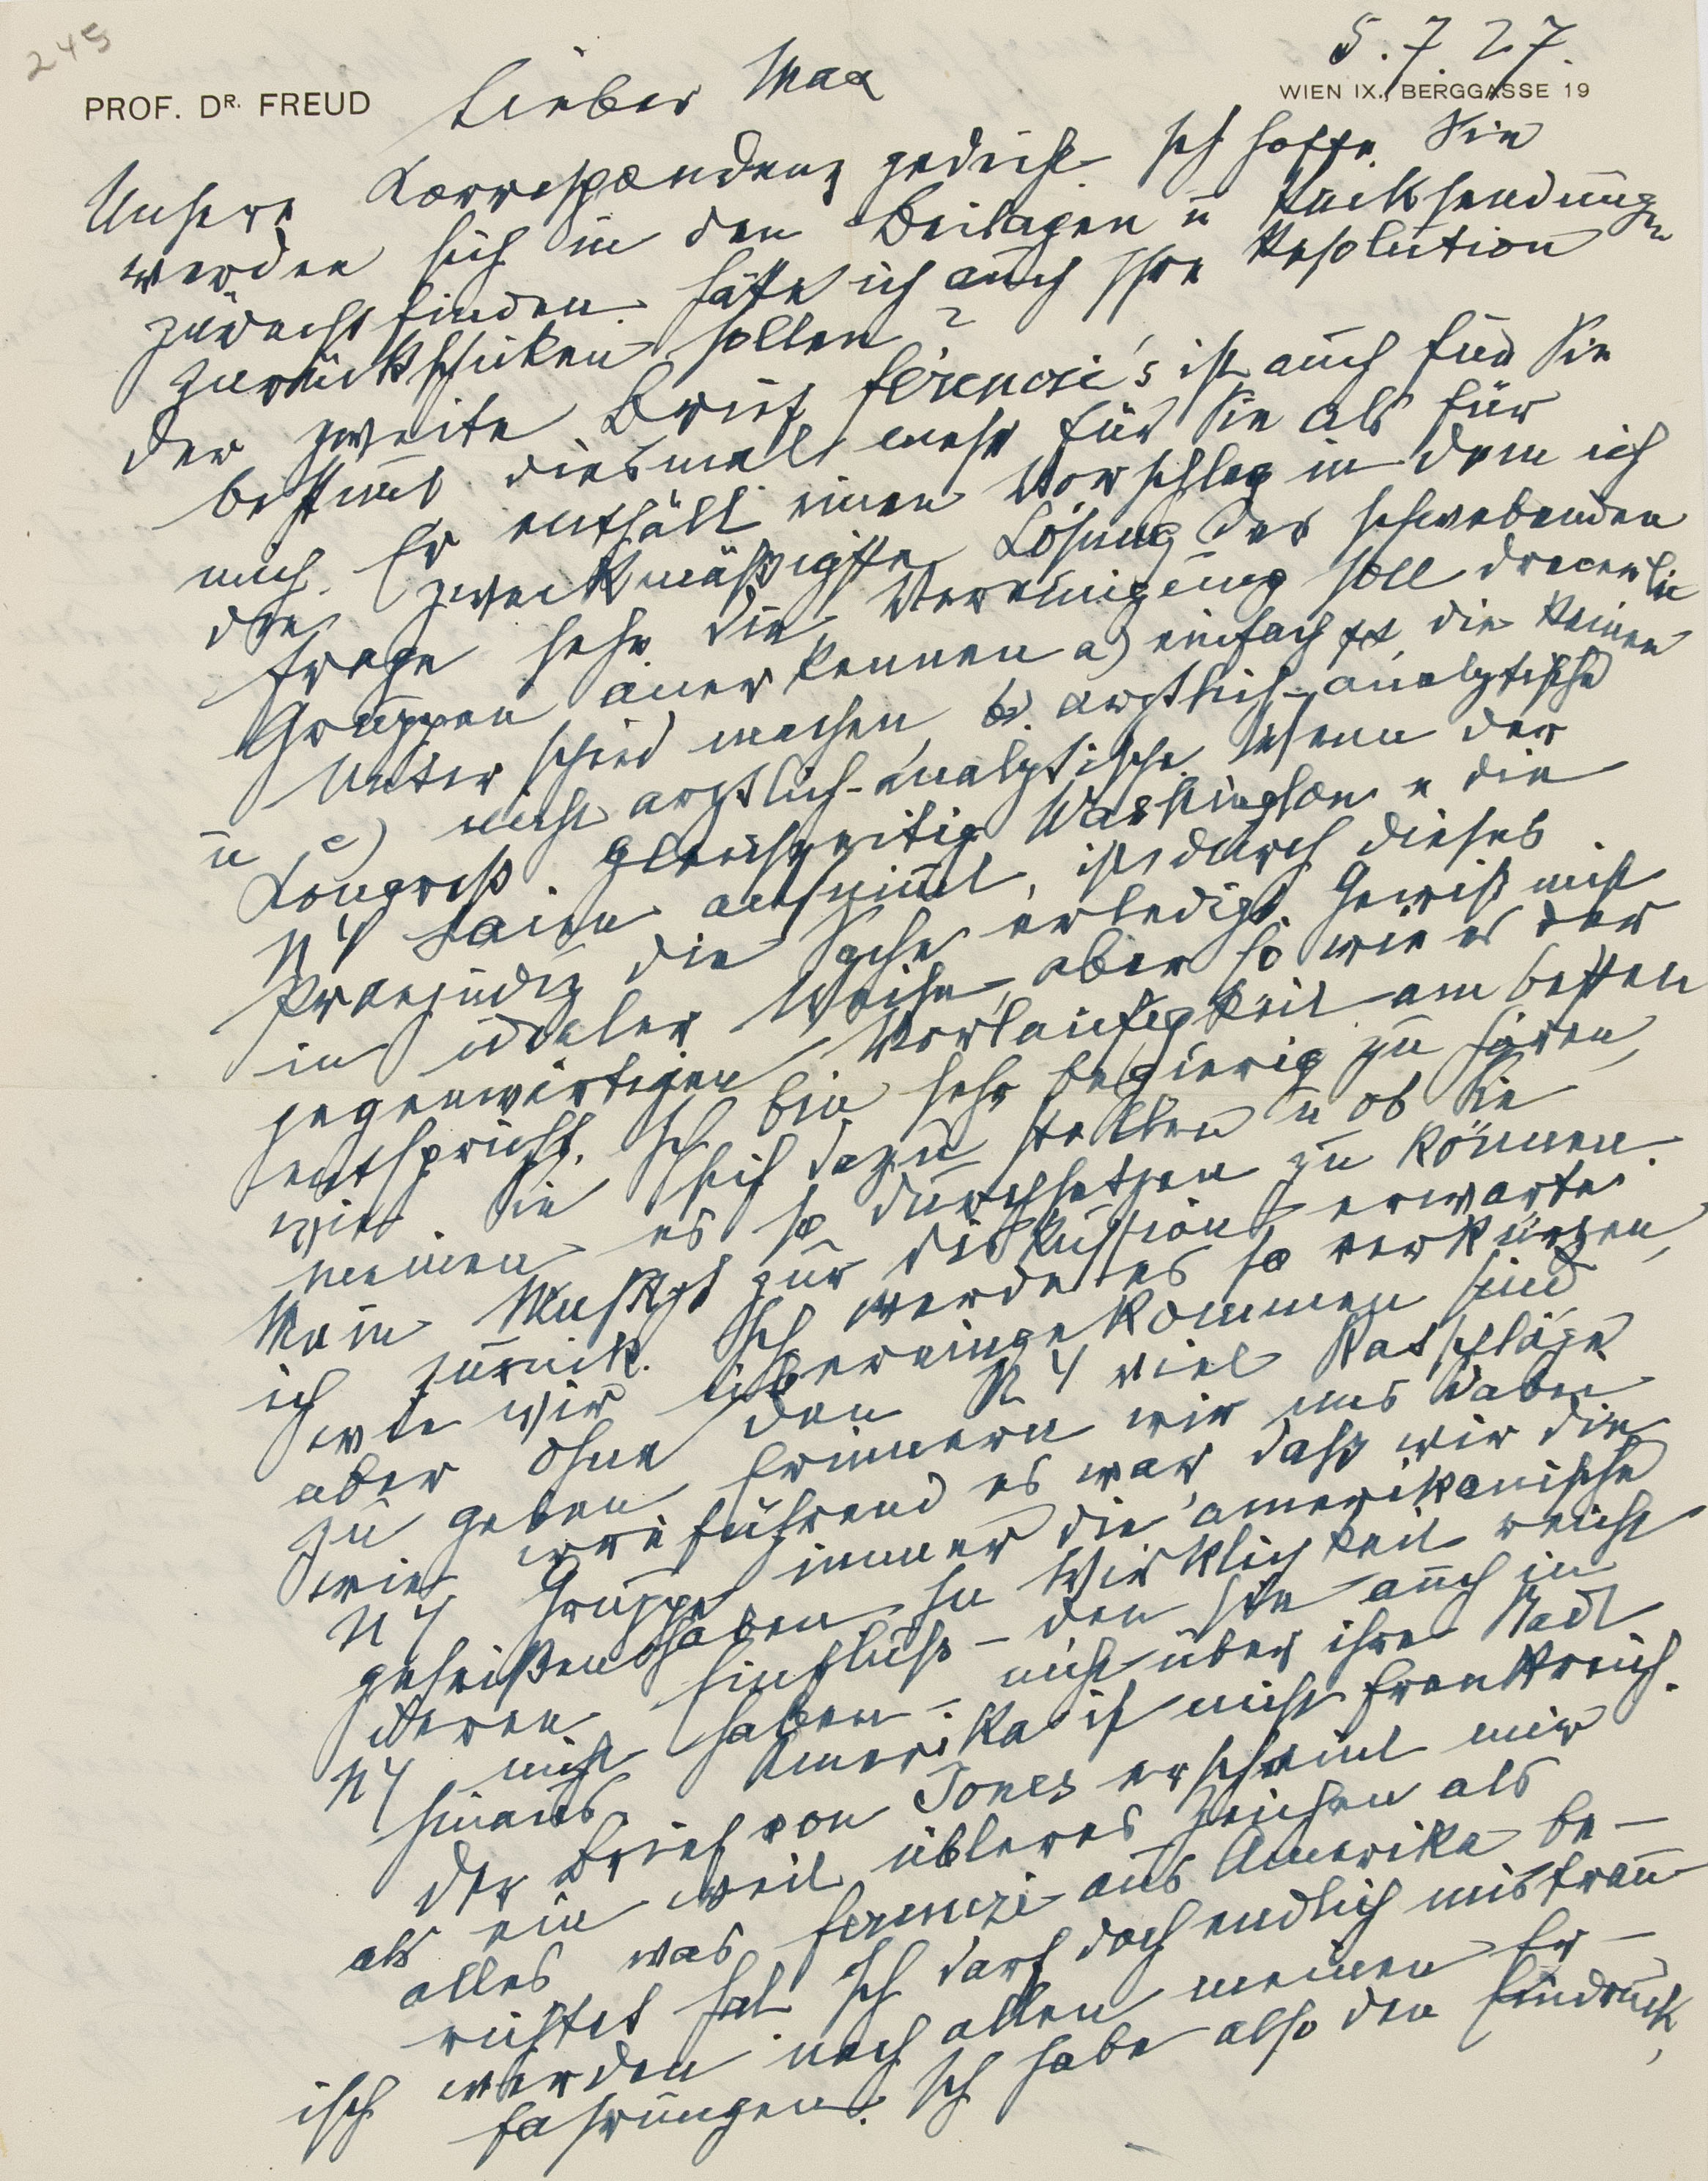 245
5.7.27.
PROF. DR. FREUD
WIEN IX., BERGGASSE 19
Lieber Max
Unsere Korrespondenz gedeiht. Ich hoffe, Sie
werden sich in den Beilagen u Rücksendungen
zurecht finden. Hätte ich auch Ihre Resolution
zurückschicken sollen?
Der zweite Brief Ferenczi's ist auch für Sie
bestimmt diesmal mehr für Sie als für
mich. Er enthält einen Vorschlag in dem ich
die zweckmäßigste Lösung der schwebenden
Frage sehe. Die Vereinigung soll dreierlei
Gruppen anerkennen a) einfach ψα, die keinen
Unterschied machen, b) ärztlich-analytische
u c) nicht ärztlich-analytische. Wenn der
Kongreß gleichzeitig Washington u die
NY Laien aufnimmt, ist durch dieses
Praejudiz die Sache erledigt. Gewiß nicht
in idealer Weise, aber so wie es der
gegenwärtigen Vorläufigkeit am besten
entspricht. Ich bin sehr begierig zu hören,
wie Sie sich dazu stellen u ob Sie
meinen es so durchsetzen zu können.
Mein Mskpt zur Diskussion erwarte
ich zurück. Ich werde es so verkürzen,
wie wir übereingekommen sind
aber ohne den NY viel Ratschläge
zu geben. Erinnern wir uns dabei
wie irreführend es war, daß wir die
NY Gruppe immer die amerikanische
geheißen haben. In Wirklichkeit reicht
deren Einfluß – den sie auch in
NY nicht haben – nicht über ihre Stadt
hinaus. Amerika ist nicht Frankreich.
Der Brief von Jones erscheint mir
als ein weit übleres Zeichen als
alles was Ferenczi aus Amerika be-
richtet hat. Ich darf doch endlich mistrau-
isch werden nach allen meinen Er-
fahrungen. Ich habe also den Eindruck,